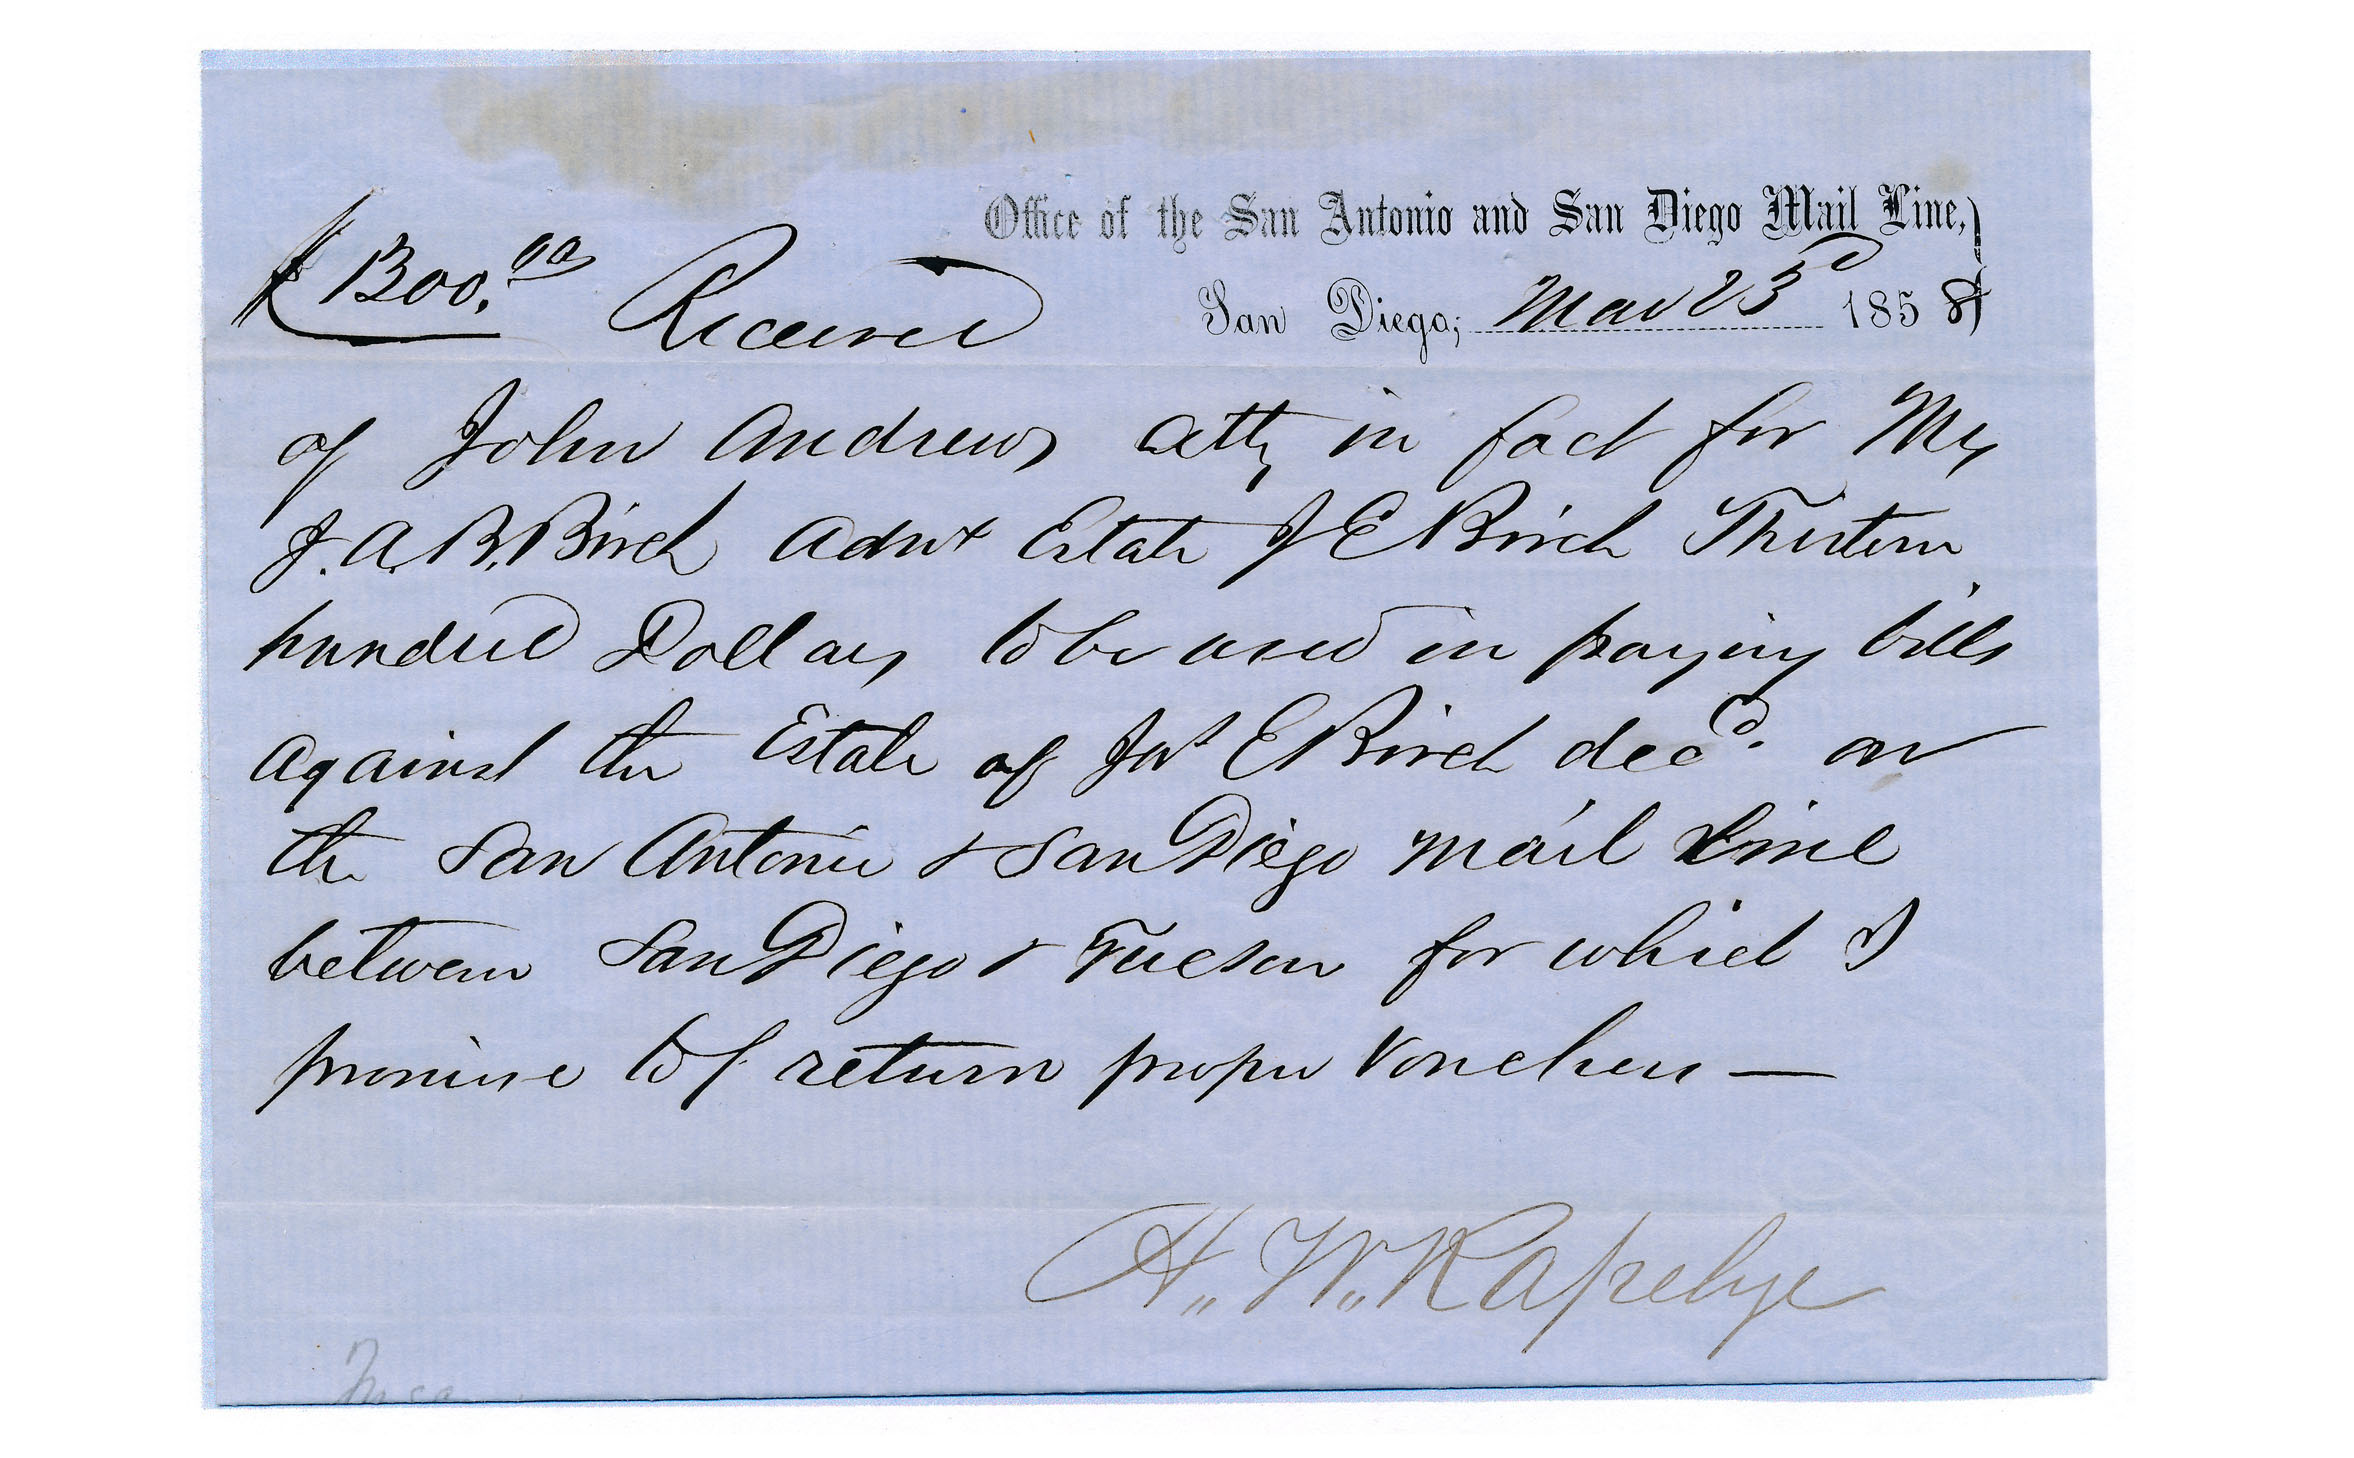 Office of the San Antonio and San Diego Mail Line,
San Diego, Mar 23d 1858
$1300.00 Received
of John Andrews atty in fact for Mrs
J. A. B. Birch admx Estate J E Birch Thirteen
hundred Dollars to be used in paying bills
against the Estate of Jas E Birch decd. on
the San Antonio & San Diego Mail Line
between San Diego & Tucson for which I
promise to return proper Vouchers —
H. W. Rapelye